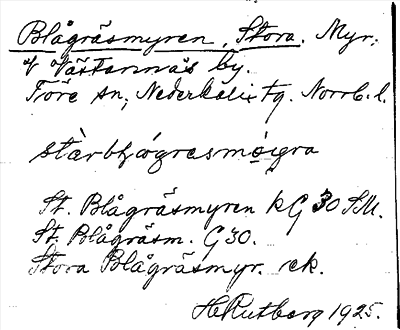 Blågräsmyren, Stora. Myr,
v Västannäs by.
Töre sn, Nederkalix tg. Norrb. l.
St. Blågräsmyren kG 30 S.M.
St. Blågräsm. G 30.
Stora Blågräsmyr. rek.
H Rutberg 1925.